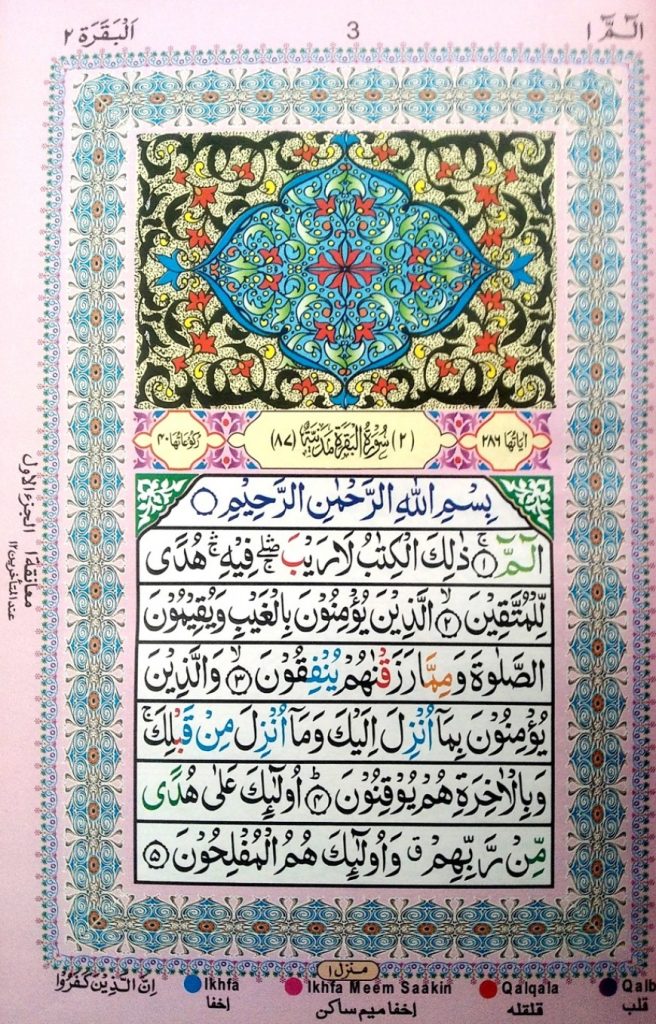 الٓمّٓ ١
3
اَلْبَقَرَة ٢
اٰیَاتُهَا ٢٨٦
(٢) سُوْرَةُ الْبَقَرَةِ مَدَنِيَّةٌ (٨٧)
رُكُوْعَاتُهَا ٤٠
بِسْمِ اللّٰهِ الرَّحْمٰنِ الرَّحِيْمِ ۝
الٓمّٓ ۝١ۚ ذٰلِكَ الْكِتٰبُ لَا رَيْبَ ۛۖۚ فِيْهِ ۛۚ هُدًى
لِّلْمُتَّقِيْنَ ۝٢ۙ الَّذِيْنَ يُؤْمِنُوْنَ بِالْغَيْبِ وَيُقِيْمُوْنَ
الصَّلٰوةَ وَمِمَّا رَزَقْنٰهُمْ يُنْفِقُوْنَ ۝٣ۙ وَالَّذِيْنَ
يُؤْمِنُوْنَ بِمَآ اُنْزِلَ اِلَيْكَ وَمَآ اُنْزِلَ مِنْ قَبْلِكَ ۚ
وَبِالْاٰخِرَةِ هُمْ يُوْقِنُوْنَ ۝٤ؕ اُولٰٓئِكَ عَلٰى هُدًى
مِّنْ رَّبِّهِمْ ۗ وَاُولٰٓئِكَ هُمُ الْمُفْلِحُوْنَ ۝٥
الجزء الاول
معانقة ١
عند المتأخرين ١٢
منزل ١
اِنَّ الَّذِيْنَ كَفَرُوْا
Ikhfa
إخفا
Ikhfa Meem Saakin
إخفا ميم ساكن
Qalqala
قلقله
Qalb
قلب